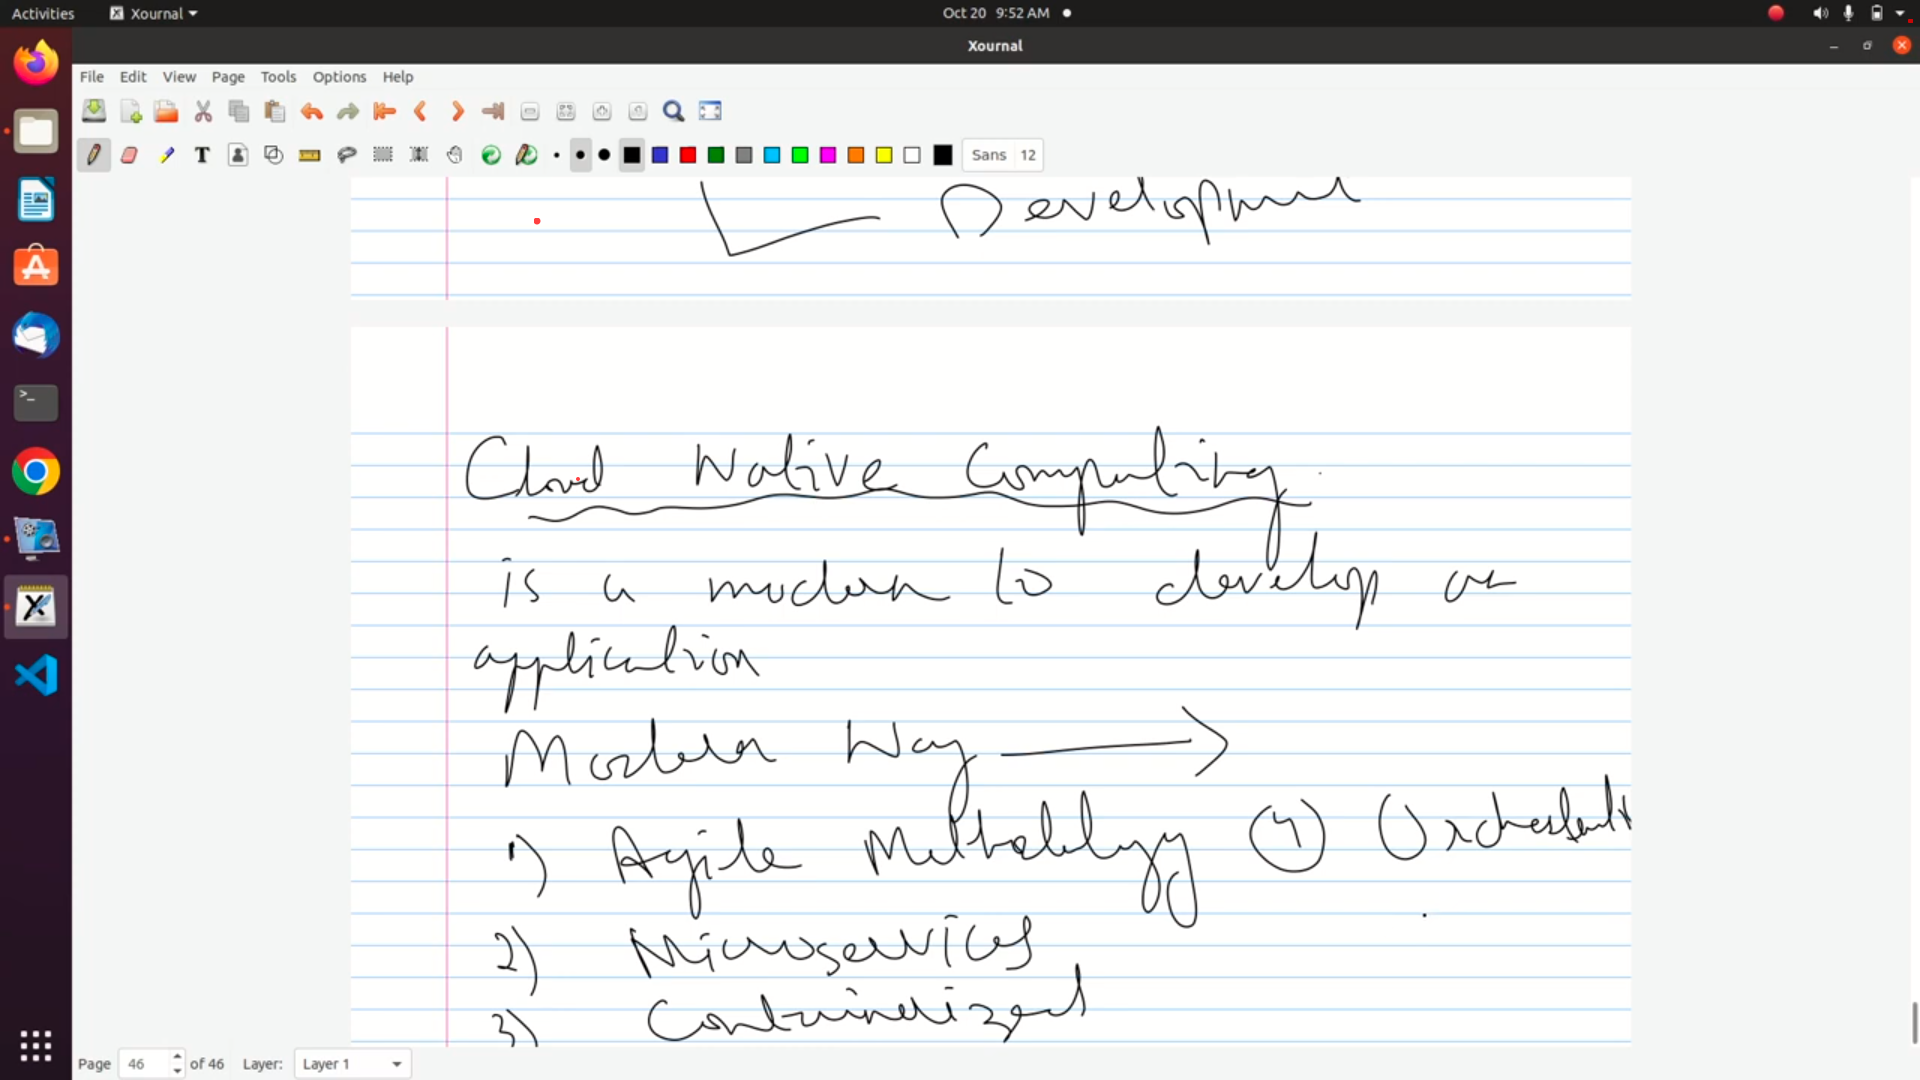 Activities Xournal Oct 20 9:52 AM
Xournal
File Edit View Page Tools Options Help
T Sans 12
Development
Cloud Native Computing
is a modern to develop an
application
Modern Way
1) Agile Methodology 4
2) Microservices
3) Containerized
Page 46 of 46 Layer: Layer 1